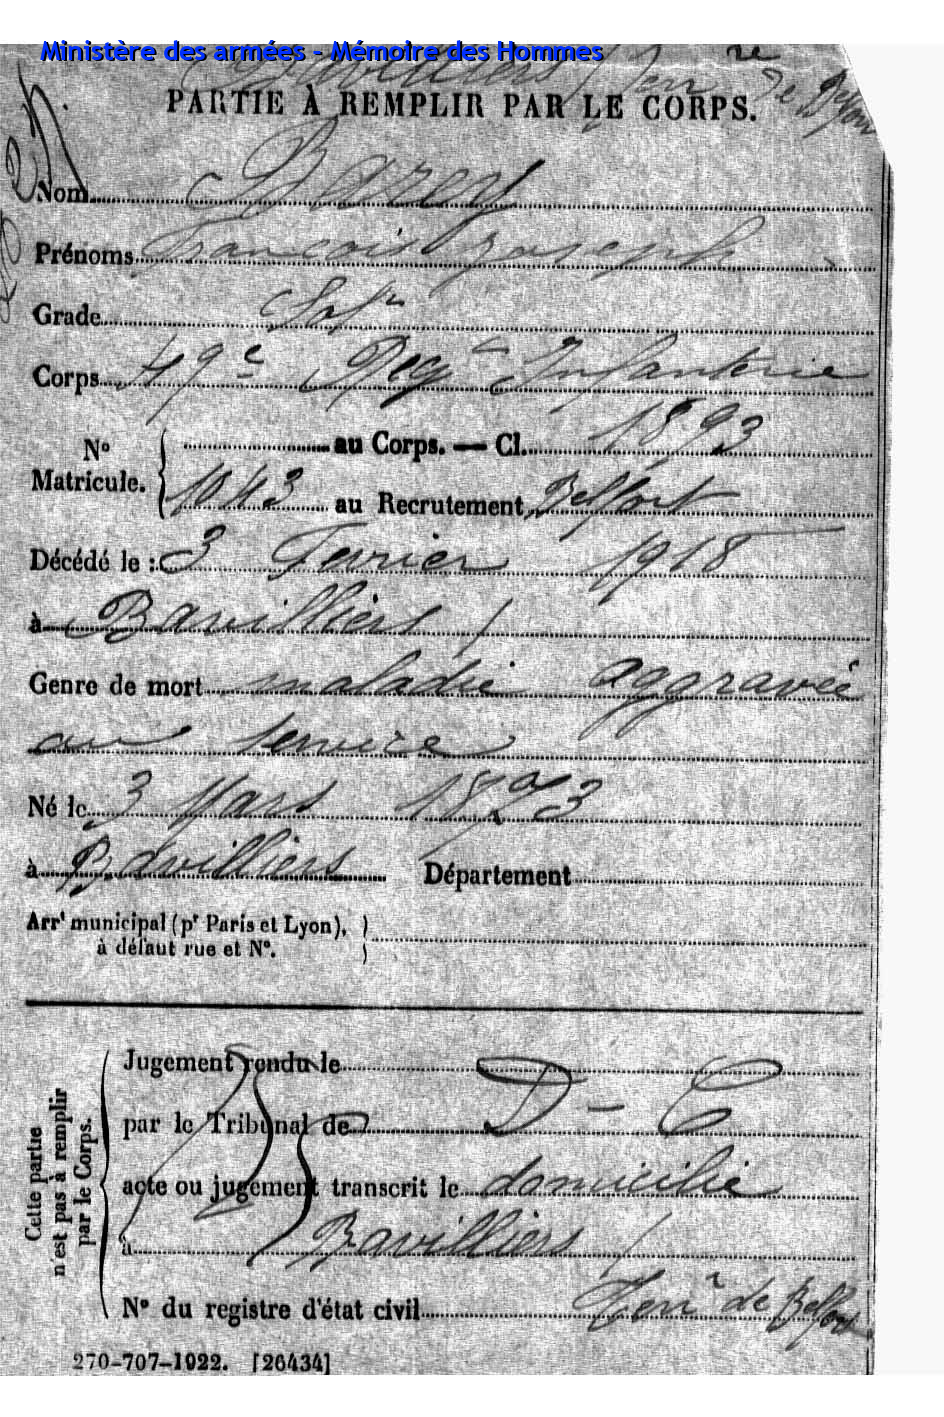 Ministère des armées - Mémoire des Hommes
PARTIE À REMPLIR PAR LE CORPS.
Nom Barey
Prénoms François Joseph
Grade
Corps 49e Regt Infanterie
No Matricule. { au Corps. — Cl. 1893
1043 au Recrutement Belfort
Décédé le : 3 Fevrier 1918
à Bavilliers /
Genre de mort maladie aggravée
au service
Né le 3 Mars 1873
à Bavilliers Département
Arrt municipal (pr Paris et Lyon), }
à défaut rue et No.
Cette partie n'est pas à remplir par le Corps.
Jugement rendu le
par le Tribunal de D - C
acte ou jugement transcrit le domicilié
à Bavilliers /
No du registre d'état civil Terre de Belfort
270-707-1922. [26434]